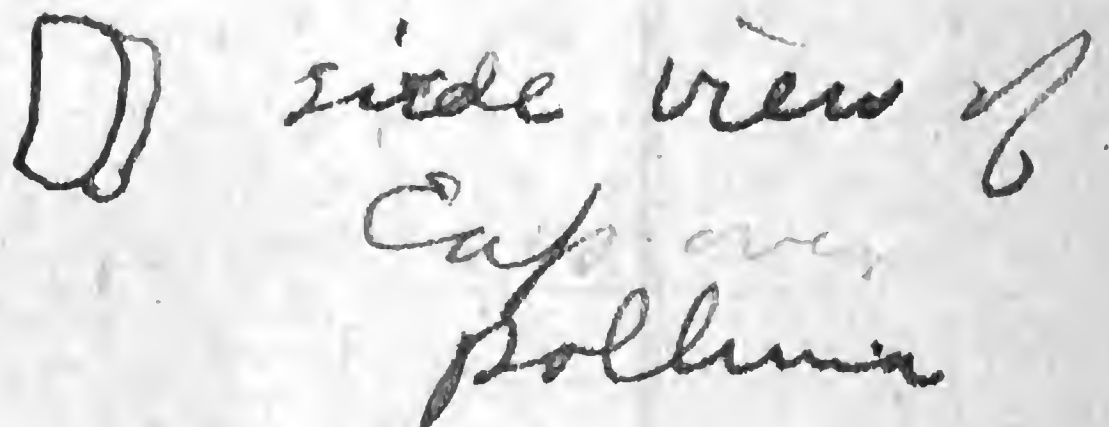 side view of
Cap over
pollinia